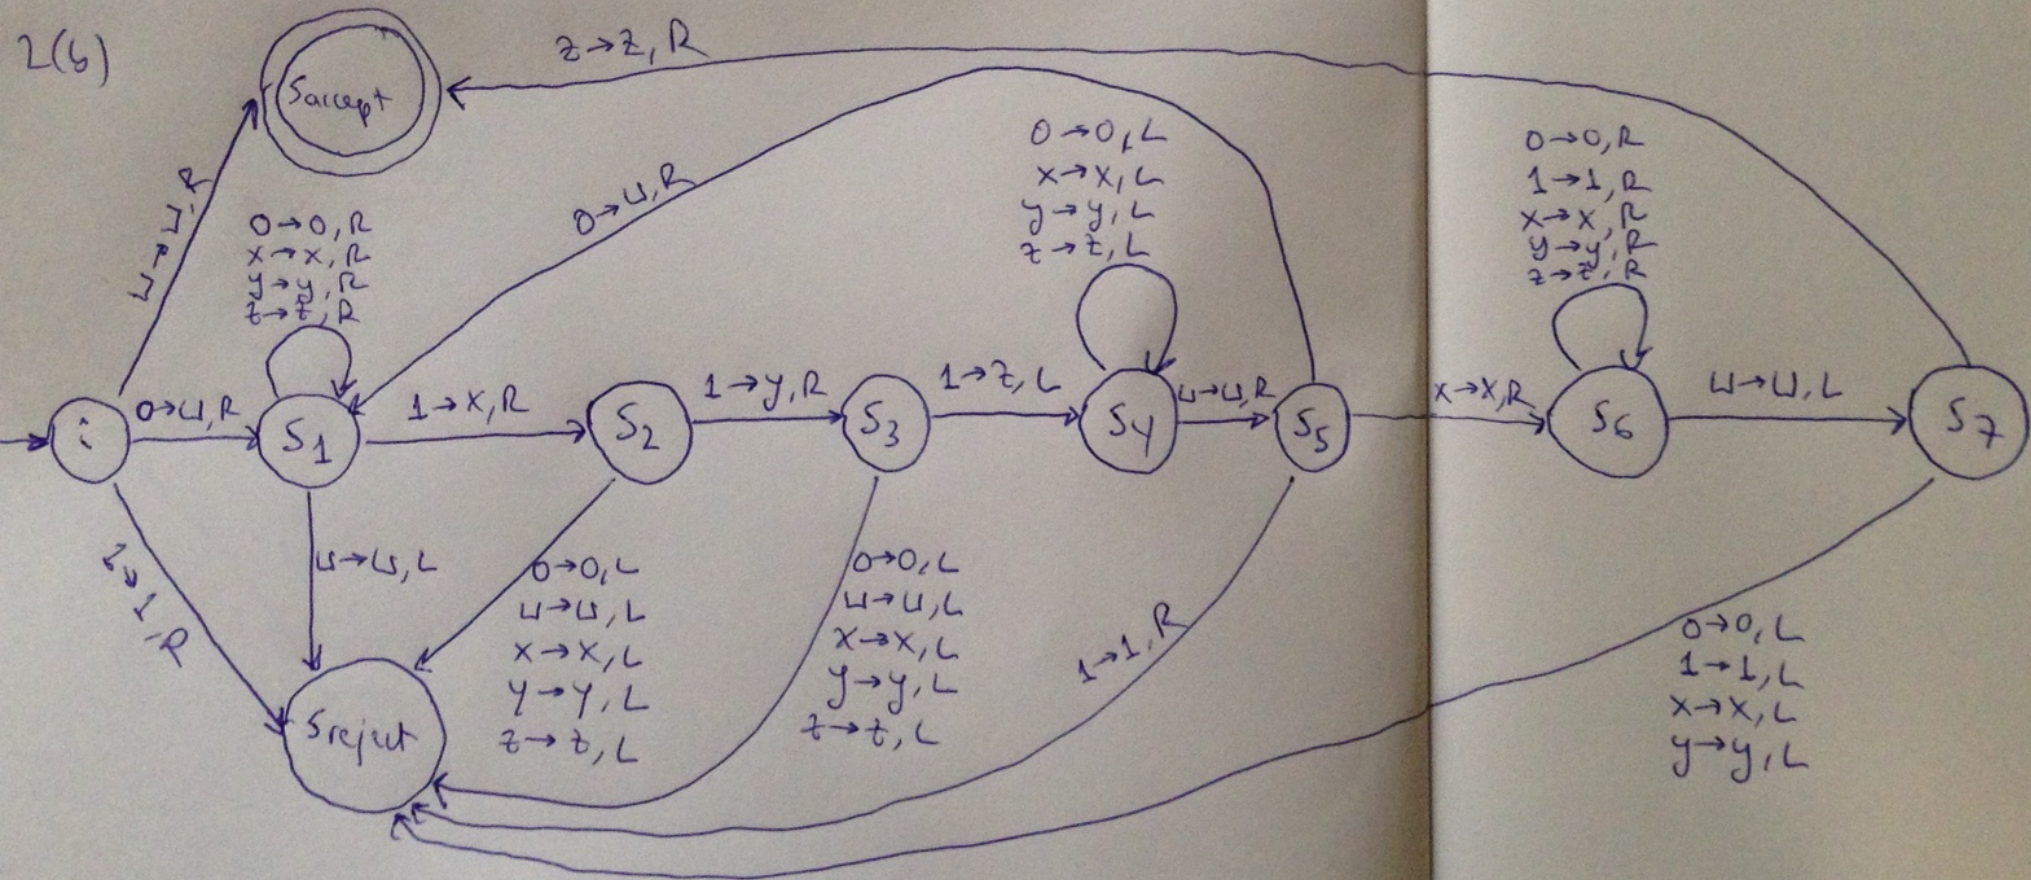 2(b)
Saccept
z→z, R
⊔→⊔, R
0→0, R
x→x, R
y→y, R
z→z, R
0→⊔, R
0→0, L
x→x, L
y→y, L
z→z, L
0→0, R
1→1, R
x→x, R
y→y, R
z→z, R
i
0→⊔, R
S1
1→x, R
S2
1→y, R
S3
1→z, L
S4
⊔→⊔, R
S5
x→x, R
S6
⊔→⊔, L
S7
1→1, R
⊔→⊔, L
0→0, L
⊔→⊔, L
x→x, L
y→y, L
z→z, L
0→0, L
⊔→⊔, L
x→x, L
y→y, L
z→z, L
1→1, R
0→0, L
1→1, L
x→x, L
y→y, L
Sreject